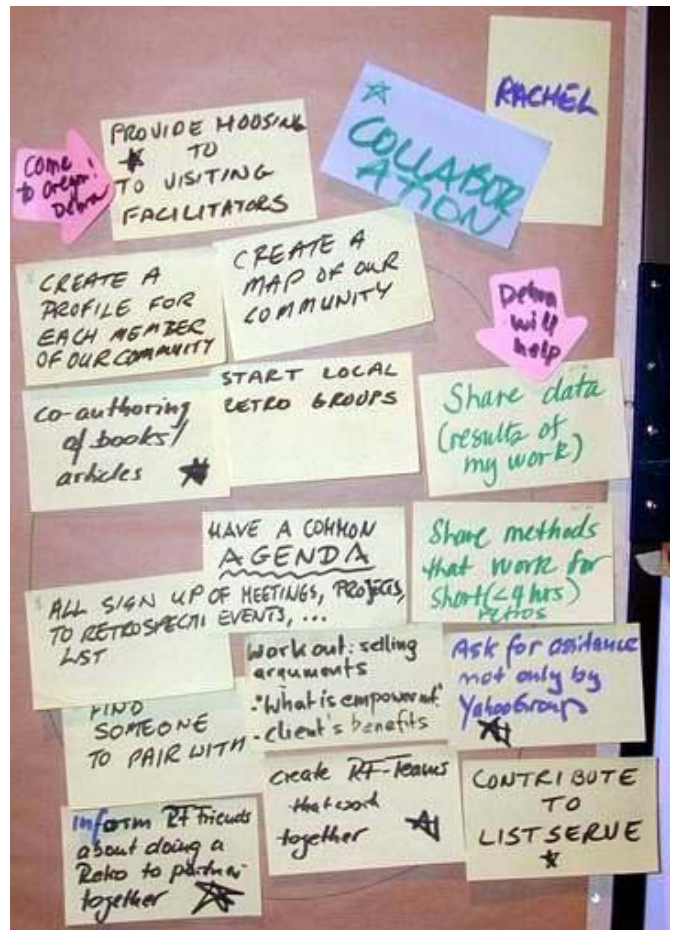 RACHEL
☆
COLLABOR
ATION
Come
to Oregon!
Debra
PROVIDE HOUSING
★ TO
TO VISITING
FACILITATORS
CREATE A
PROFILE FOR
EACH MEMBER
OF OUR COMMUITY
CREATE A
MAP OF OUR
COMMUNITY
Debra
will
help
Co-authoring
of books/
articles ★
START LOCAL
RETRO GROUPS
Share data
(results of
my work)
HAVE A COMMON
AGENDA
OF MEETINGS, PROJECTS,
EVENTS, ...
Share methods
that work for
short (<4 hrs)
retros
ALL SIGN UP
TO RETROSPECTI
LIST
Work out: selling
arguments
- "What is empowermt"
- client's benefits
Ask for assistance
not only by
YahooGroups
★
FIND
SOMEONE
TO PAIR WITH
create RF-Teams
that work
together ★
CONTRIBUTE
TO
LISTSERVE
★
Inform RF friends
about doing a
Retro to partner
together ★